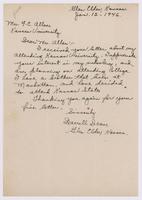 Glen Elder, Kansas
Jan. 12 - 1946.
Mr. F.C. Allen
Kansas University
Dear Mr. Allen:
I received your letter about my
attending Kansas University. I appreciate
your interest in my schooling, and
am planning on attending College.
I have a brother that lives at
Manhattan, and have decided
to attend Kansas State.
Thanking you again for your
fine letter.
Sincerely
Dean
Glen Elder, Kansas.